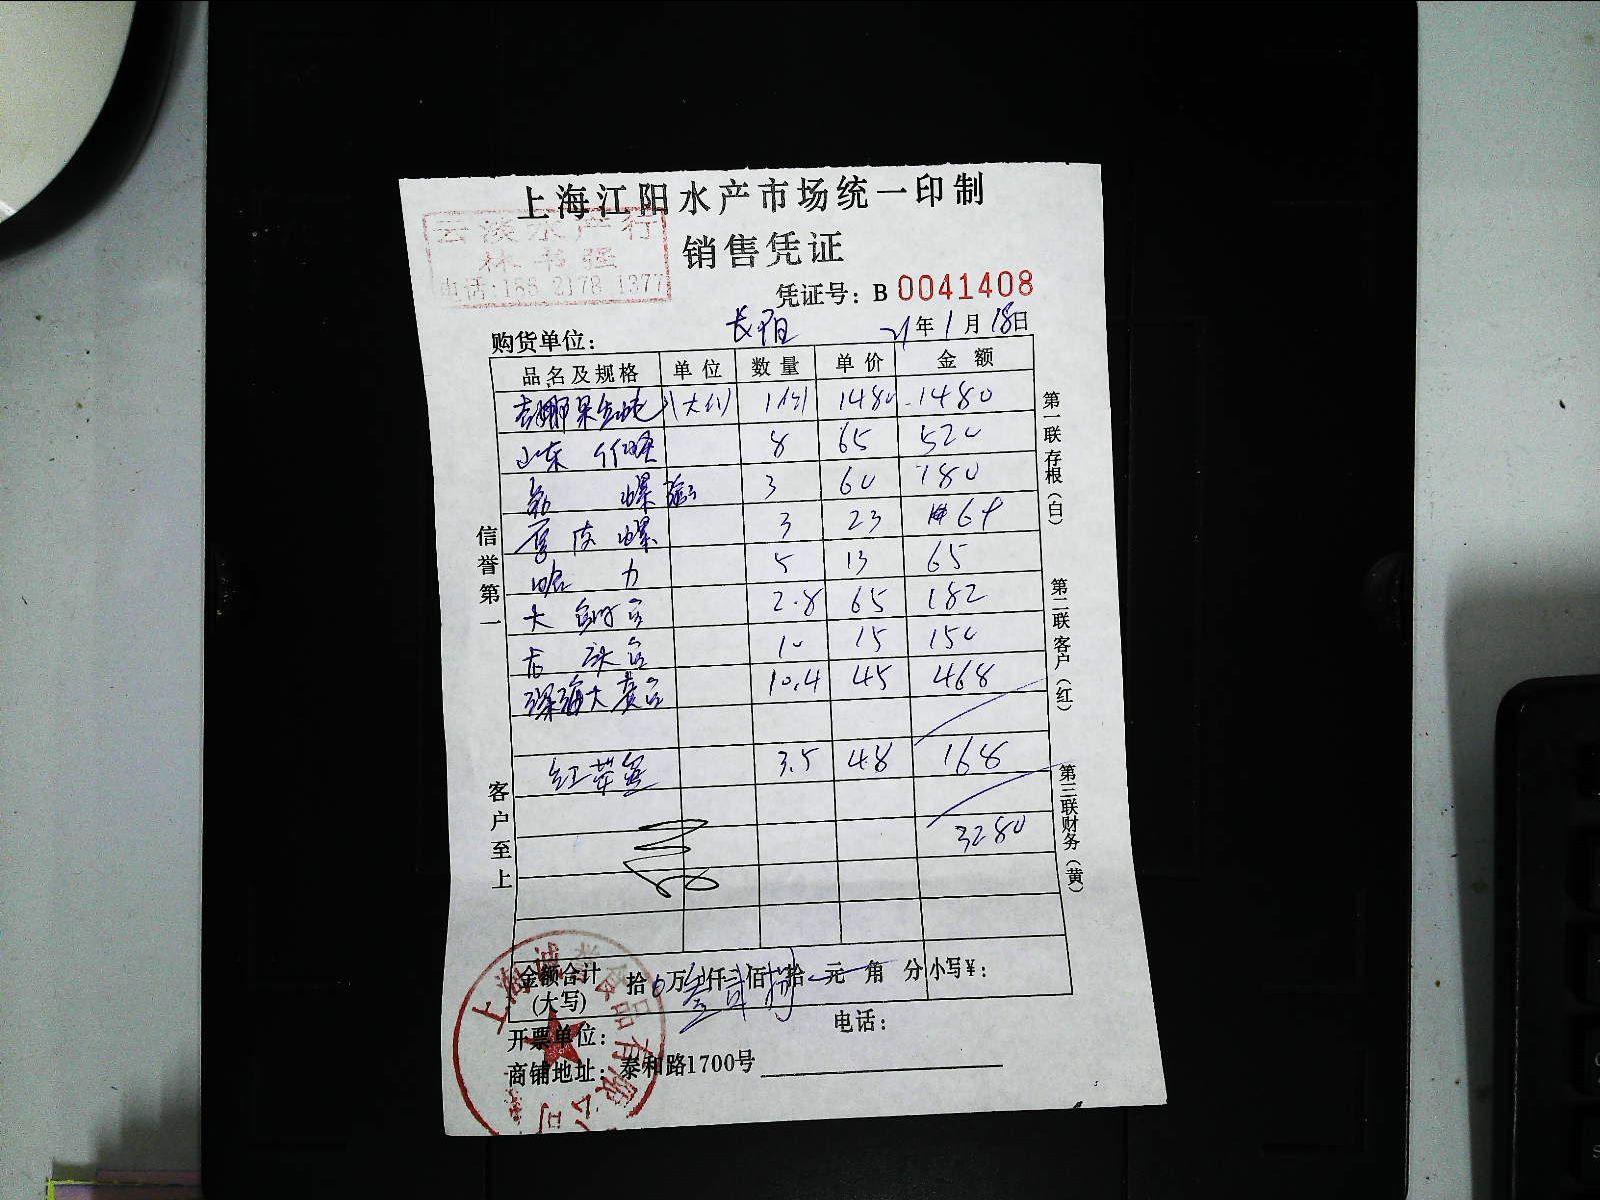 上海江阳水产市场统一印制
云淡水产行
林书强
电话:158 2178 1377
销售凭证
凭证号: B 0041408
购货单位: 长阳 21年1月18日
品名及规格 单位 数量 单价 金额
(大W) 1份 1480 1480
山东 8 65 520
螺 3 60 180
厚皮螺 3 23 69
哈力 5 13 65
大 2.8 65 182
10 15 150
深海大黄 10.4 45 468
红 3.5 48 168
3280
金额合计 拾0万叁仟贰佰捌拾元角分 小写¥:
(大写)
开票单位: 电话:
商铺地址: 泰和路1700号
信誉第一
客户至上
第一联存根(白)
第二联客户(红)
第三联财务(黄)
上海诚誉食品有限公司